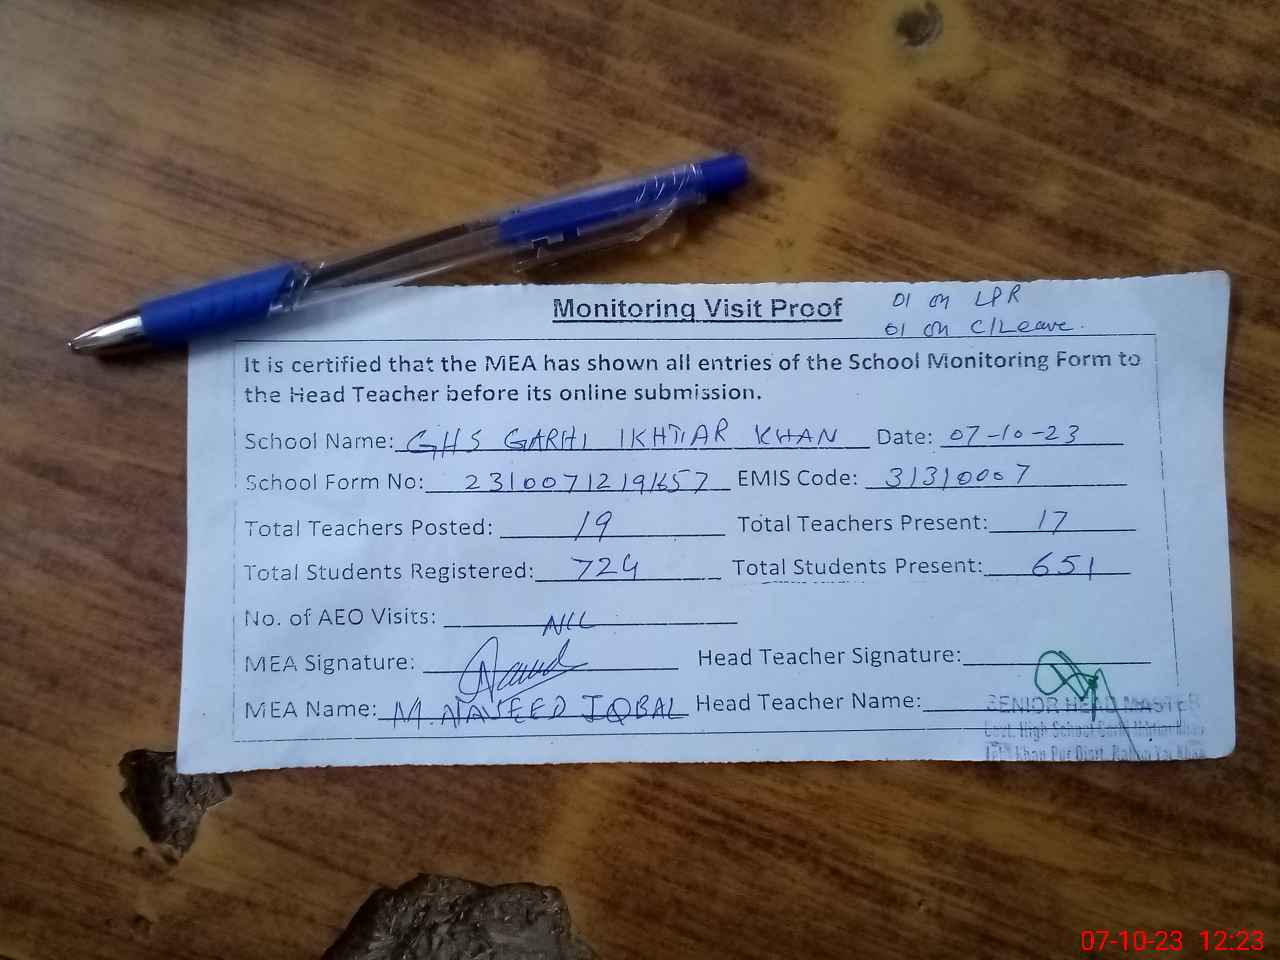 Monitoring Visit Proof
01 on LPR
01 on C/Leave.
It is certified that the MEA has shown all entries of the School Monitoring Form to
the Head Teacher before its online submission.
School Name: GHS GARHI IKHTIAR KHAN Date: 07-10-23
School Form No: 23100712191657 EMIS Code: 31310007
Total Teachers Posted: 19 Total Teachers Present: 17
Total Students Registered: 724 Total Students Present: 651
No. of AEO Visits: NIL
MEA Signature: Head Teacher Signature:
MEA Name: M. NAVEED IQBAL Head Teacher Name:
SENIOR HEAD MASTER
Govt. High School Garhi Ikhtiar Khan
Khan Pur Distt. Rahim Yar Khan
07-10-23 12:23